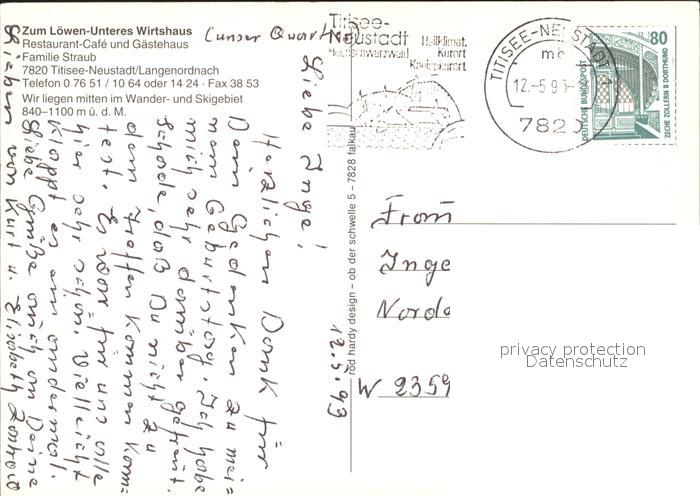 Zum Löwen-Unteres Wirtshaus
(unser Quartier)
Restaurant-Café und Gästehaus
Familie Straub
7820 Titisee-Neustadt/Langenordnach
Telefon 0 76 51 / 10 64 oder 14 24 · Fax 38 53
Wir liegen mitten im Wander- und Skigebiet
840–1100 m ü. d. M.
Titisee-
Neustadt
Hochschwarzwald
Heilklimat.
Kurort
Kneippkurort
TITISEE-NEUSTADT
mb
12.-5.93-
782
80
DEUTSCHE BUNDESPOST
ZECHE ZOLLERN II DORTMUND
12.5.93
Liebe Inge!
Herzlichen Dank für
Dein Gedenken zu mei=
nem Geburtstag. Ich habe
mich sehr darüber gefreut.
Schade, daß Du nicht zu
dem Treffen kommen konn=
test. Es war für uns alle
hier sehr schön. Vielleicht
klappt es ein andermal.
Liebe Grüße auch an Deine
Lieben von Kurt u. Elisabeth
rod hardy design – ob der schwelle 5 – 7828 falkau
Frau
Inge
Norde
W 2359
privacy protection
Datenschutz